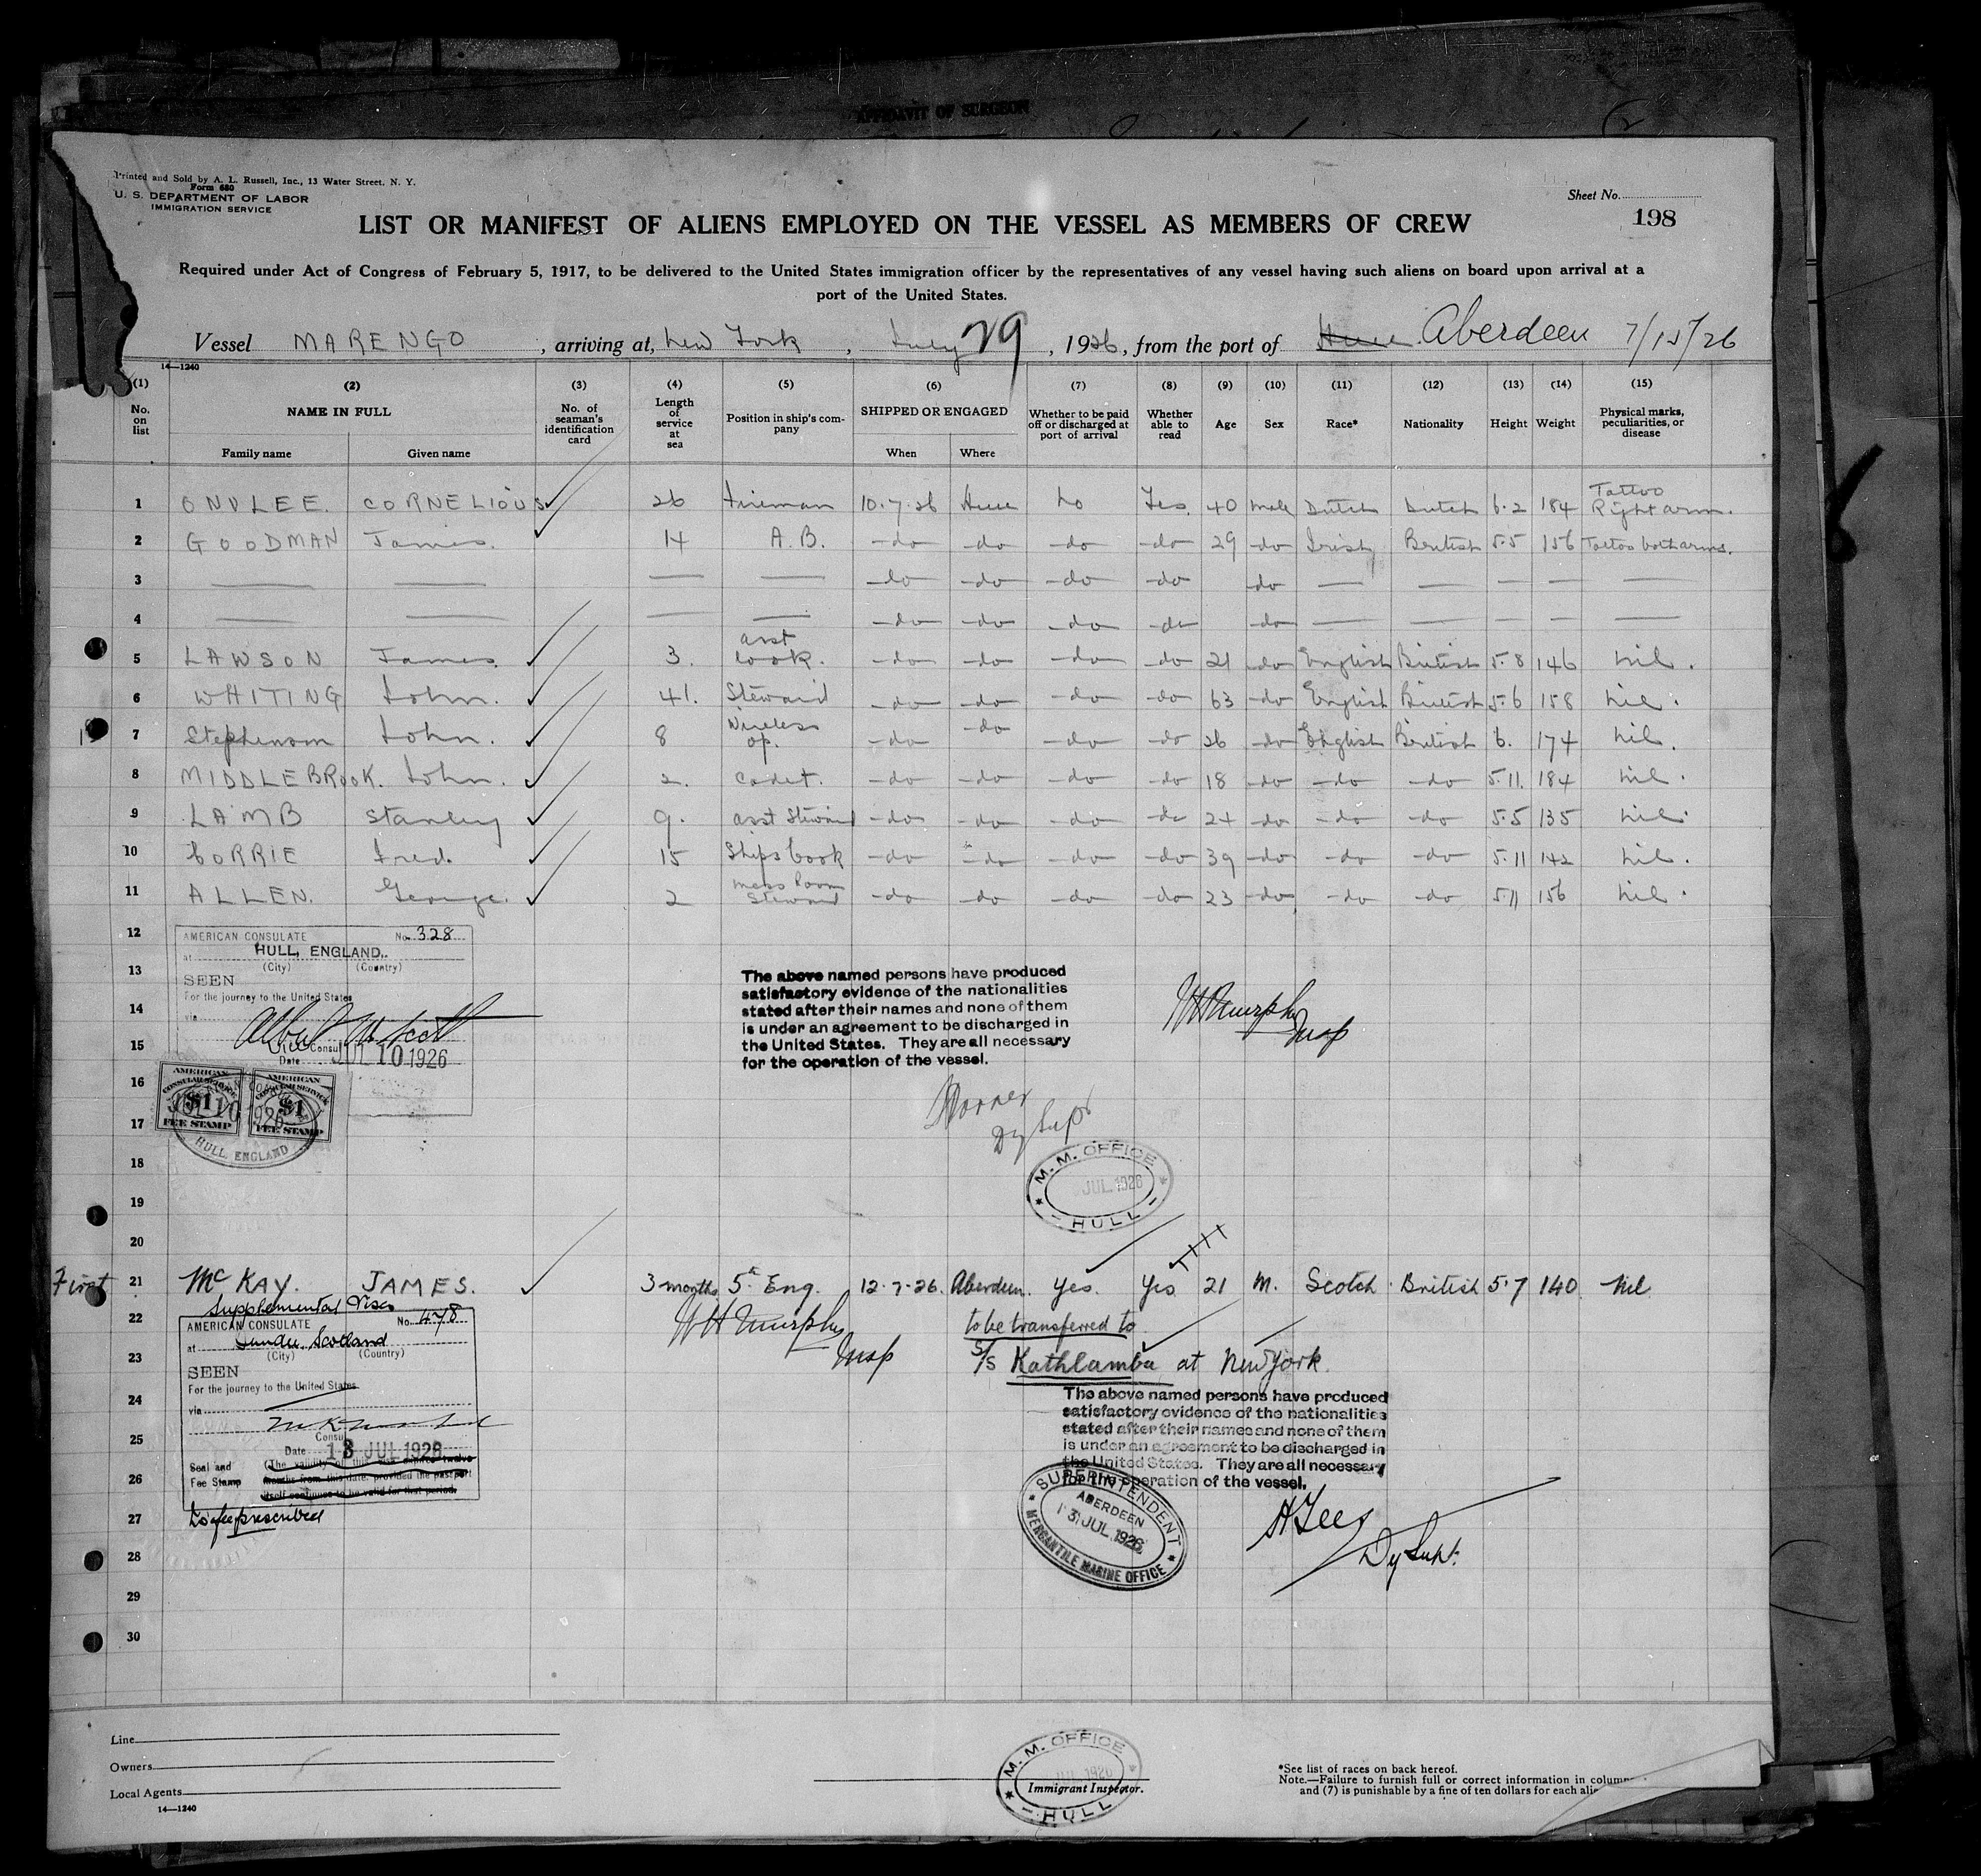 AFFIDAVIT OF SURGEON
Printed and Sold by A. L. Russell, Inc., 13 Water Street, N. Y.
Form 680
U. S. DEPARTMENT OF LABOR
IMMIGRATION SERVICE
Sheet No.
198
LIST OR MANIFEST OF ALIENS EMPLOYED ON THE VESSEL AS MEMBERS OF CREW
Required under Act of Congress of February 5, 1917, to be delivered to the United States immigration officer by the representatives of any vessel having such aliens on board upon arrival at a
port of the United States.
Vessel MARENGO, arriving at, New York, July 29, 1926, from the port of Hull Aberdeen 7/15/26
14—1240
(1) (2) (3) (4) (5) (6) (7) (8) (9) (10) (11) (12) (13) (14) (15)
No. on list NAME IN FULL Family name Given name No. of seaman's identification card Length of service at sea Position in ship's company SHIPPED OR ENGAGED When Where Whether to be paid off or discharged at port of arrival Whether able to read Age Sex Race* Nationality Height Weight Physical marks, peculiarities, or disease
1 ONVLEE. CORNELIOUS 26 Fireman 10.7.26 Hull No Yes. 40 male Dutch Dutch 6.2 184 Tattoo Right arm.
2 GOODMAN James. 14 A.B. do do do do 29 do Irish British 5.5 156 Tattoo both arms.
3 — — — — do do do do do — — — — —
4 — — — — do do do do do — — — — —
5 LAWSON James. 3. asst cook. do do do do 21 do English British 5.8 146 nil.
6 WHITING John. 41. Steward do do do do 63 do English British 5.6 158 nil.
7 Stephenson John. 8 Wireless op. do do do do 26 do English British 6. 174 nil.
8 MIDDLEBROOK. John. 2. Cadet. do do do do 18 do do do 5.11. 184 nil.
9 LAMB Stanley 9. asst Steward do do do do 24 do do do 5.5 135 nil.
10 CORRIE Fred. 15 Ships Cook do do do do 39 do do do 5.11 142 nil.
11 ALLEN. George. 2 Mess Room Steward do do do do 23 do do do 5.11 156 nil.
12
13
14
15
16
17
18
19
20
AMERICAN CONSULATE No. 328
at HULL, ENGLAND.
(City) (Country)
SEEN
For the journey to the United States
via
Albert W Scott
Vice Consul
Date JUL 10 1926
AMERICAN CONSULAR SERVICE $1 FEE STAMP
AMERICAN CONSULAR SERVICE $1 FEE STAMP
JUL 10 1926
HULL, ENGLAND
The above named persons have produced
satisfactory evidence of the nationalities
stated after their names and none of them
is under an agreement to be discharged in
the United States. They are all necessary
for the operation of the vessel.
WH Murphy
Insp
Dy Supt
M. M. OFFICE
JUL 1926
HULL
First 21 McKAY. JAMES. 3 months. 5th Eng. 12.7.26. Aberdeen. Yes. Yes 21 M. Scotch British 5.7 140 Nil
22
23
24
25
26
27
28
29
30
WH Murphy
Insp
to be transferred to
S/S Kathlamba at New York.
Supplemental Visa
AMERICAN CONSULATE No. 478
at Dundee, Scotland
(City) (Country)
SEEN
For the journey to the United States
via
Consul
Date 13 JUL 1926
Seal and
Fee Stamp
(The validity of this visa expires twelve
months from this date, provided the passport
itself continues to be valid for that period.
No fee prescribed
The above named persons have produced
satisfactory evidence of the nationalities
stated after their names and none of them
is under an agreement to be discharged in
the United States. They are all necessary
for the operation of the vessel.
SUPERINTENDENT
ABERDEEN
13 JUL 1926
MERCANTILE MARINE OFFICE
Dy Supt.
Line
Owners
Local Agents
14—1240
M. M. OFFICE
JUL 1926
HULL
Immigrant Inspector.
*See list of races on back hereof.
Note.—Failure to furnish full or correct information in
and (7) is punishable by a fine of ten dollars for each